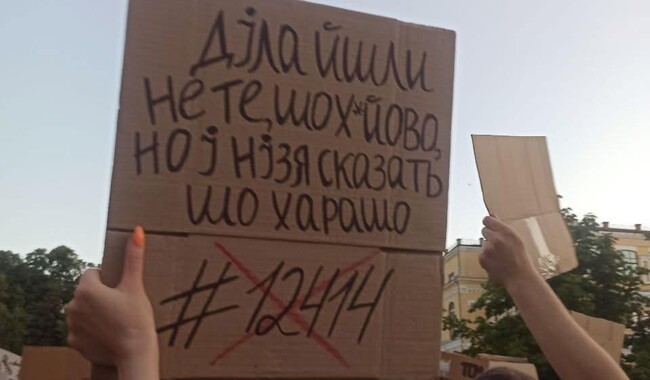 Діла йшли
не те, шо х*йово,
но і нізя сказать
шо харашо
#12414